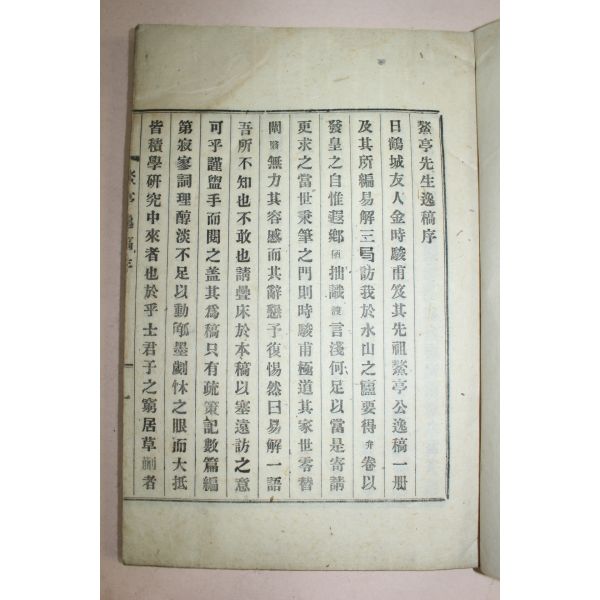 鰲亭先生逸稿序
日鶴城友人金時駿甫笈其先祖鰲亭公逸稿一册
及其所編易解三局訪我於水山之廬要得弁卷以
發皇之自惟遐鄕陋拙識謏言淺何足以當是寄請
更求之當世秉筆之門則時駿甫極道其家世零替
闡無力其容慼而其辭懇予復惕然曰易解一語
吾所不知也不敢也請疊床於本稿以塞遠訪之意
可乎謹盥手而閱之盖其爲稿只有疏策記數篇編
第寂寥詞理醇淡不足以動墨劌怵之眼而大抵
皆積學硏究中來者也於乎士君子之窮居草者
亭逸稿序